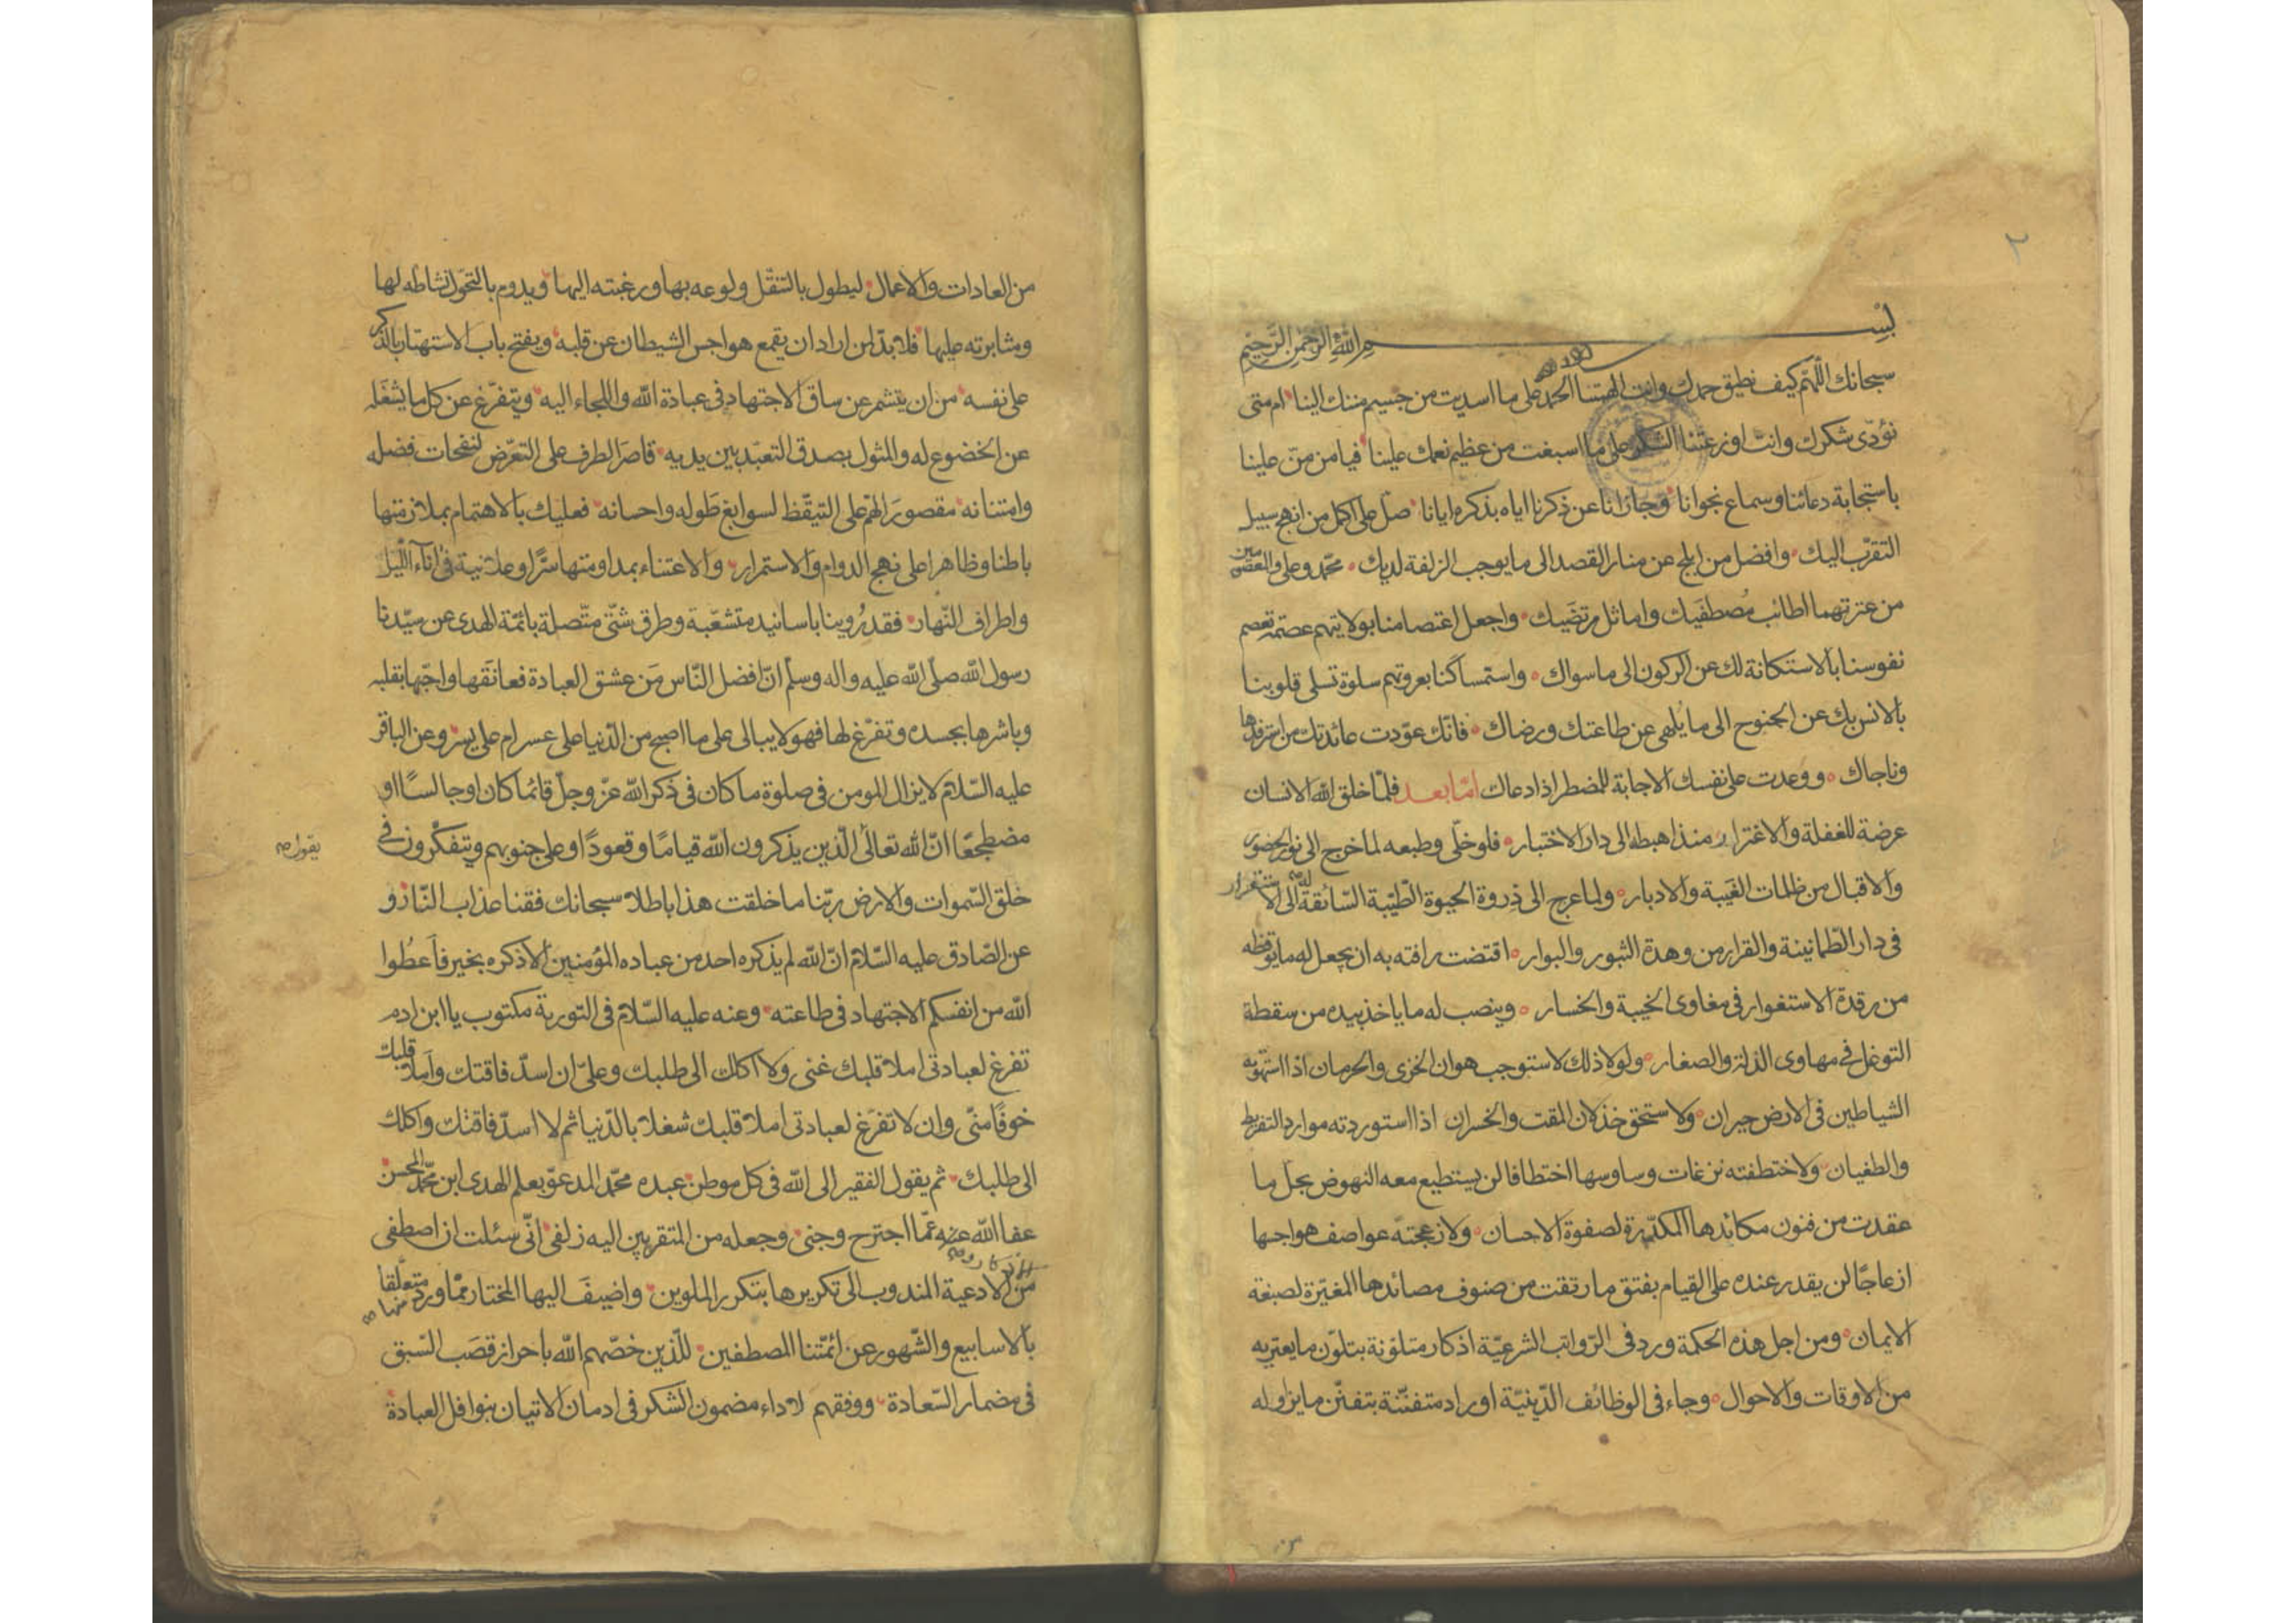 ٢
بسم الله الرحمن الرحيم
سبحانك اللهم كيف نطيق حمدك وانت الهمتنا الحمد على ما اسديت من جسيم مننك الينا ام متى
نؤدّى شكرك وانت اوزعتنا الشكر على ما اسبغت من عظيم نعمك علينا فيا من منّ علينا
باستجابة دعائنا وسماع نجوانا وجازانا عن ذكرنا اياه بذكره ايانا صلّ على اكمل من انهج سبيل
التقرّب اليك وافضل من ابلج عن منار القصد الى ما يوجب الزلفة لديك محمّد وعلى والمعصومين
من عترتهما اطائب مُصطفَيك واماثل مرتضَيك واجعل اعتصامنا بولايتهم عصمة تعصم
نفوسنا بالاستكانة لك عن الركون الى ما سواك واستمساكنا بعروتهم سلوة تسلى قلوبنا
بالانس بك عن الجنوح الى ما يُلهى عن طاعتك ورضاك فانّك عوّدت عائدتك من استرفدها
وناجاك ووعدت على نفسك الاجابة للمضطر اذا دعاك امّا بعد فلمّا خلق الله الانسان
عرضة للغفلة والاغترار منذ اهبطه الى دار الاختبار فلو خلّى وطبعه لما خرج الى نور الحضور
والاقبال من ظلمات الغيبة والادبار ولما عرج الى ذروة الحيوة الطيّبة السّائقة له الى الاستقرار
فى دار الطمانينة والقرار من وهدة الثبور والبوار اقتضت رافته به ان يجعل له ما يوقظه
من رقدة الاستغوار فى مغاوى الخيبة والخسار وينصب له ما ياخذ بيده من سقطة
التوغل فى مهاوى الذلة والصغار ولولا ذلك لاستوجب هوان الخزى والحرمان اذا استهوته
الشياطين فى الارض حيران ولاستحق خذلان المقت والخسران اذا استوردته موارد التفريط
والطغيان ولاختطفته نزغات وساوسها اختطافا لن يستطيع معه النهوض بحلّ ما
عقدت من فنون مكائدها المكدّرة لصفوة الاحسان ولازعجته عواصف هواجسها
ازعاجًا لن يقدر عنده على القيام بفتق ما رتقت من صنوف مصائدها المغيّرة لصبغة
الايمان ومن اجل هذه الحكمة ورد فى الرّواتب الشرعيّة اذكار متلوّنة بتلوّن ما يعتريه
من الاوقات والاحوال وجاء فى الوظائف الدّينيّة اوراد متفنّنة بتفنّن ما يزاوله
من العادات والاعمال ليطول بالتنقّل ولوعه بها ورغبته اليها ويدوم بالتحوّل نشاطه لها
ومثابرته عليها فلا بدّ لمن اراد ان يقمع هواجس الشيطان عن قلبه ويفتح باب الاستهتار بالذكر
على نفسه من ان يتشمر عن ساق الاجتهاد فى عبادة الله واللجاء اليه ويتفرّغ عن كل ما يشغَله
عن الخضوع له والمثول بصدق التعبّد بين يديه قاصَر الطرف على التعرّض لنفحات فضله
وامتنانه مقصورَ الهمّ على التيقّظ لسوابغ طَوله واحسانه فعليك بالاهتمام بملازمتها
باطنا وظاهرا على نهج الدوام والاستمرار والاعتناء بمداومتها سرًّا وعلانية فى انآء اللّيل
واطراف النّهار فقد رُوينا باسانيد متشعّبة وطرق شتّى متّصلة بائمّة الهدى عن سيّدنا
رسول الله صلّى الله عليه واله وسلّم انّ افضل النّاس مَن عشق العبادة فعانَقها واحبّها بقلبه
وباشرها بجسده وتفرّغ لها فهو لا يبالى على ما اصبح من الدّنيا على عسر ام على يسر وعن الباقر
عليه السّلام لا يزال المومن فى صلوة ما كان فى ذكر الله عزّ وجلّ قائما كان او جالسًا او
مضطجعًا انّ الله تعالى الّذين يذكرون الله قيامًا وقعودًا وعلى جنوبهم ويتفكّرون فى
يقول صح
خلق السّموات والارض ربّنا ما خلقت هذا باطلا سبحانك فقنا عذاب النّار و
عن الصّادق عليه السّلام انّ الله لم يذكره احد من عباده المؤمنين الا ذكره بخير فاَعطُوا
الله من انفسكم الاجتهاد فى طاعته وعنه عليه السّلام فى التورية مكتوب يا ابن ادم
تفرغ لعبادتى املا قلبك غنى ولا اكلك الى طلبك وعلىّ ان اسدّ فاقتك واَملا قلبك
خوفًا منّى وان لا تفرَغ لعبادتى املا قلبك شغلا بالدّنيا ثم لا اسدّ فاقتك واكلك
الى طلبك ثم يقول الفقير الى الله فى كل موطن عبده محمّد المدعوّ بعلم الهدى ابن محمّد المحسن
عفا الله عنه عمّا اجترح وجنى وجعله من المتقربين اليه زلفى انّى سئلت ان اصطفى
من الادعية المندوب الى تكريرها بتكرر الملوين واضيفَ اليها المختار ممّا ورد منها متعلّقا
بالاسابيع والشّهور عن ائمّتنا المصطفين للّذين خصّهم الله باحراز قصَب السّبق
فى مضمار السّعادة ووفقهم لاداء مضمون الشكر فى ادمان الاتيان بنوافل العبادة